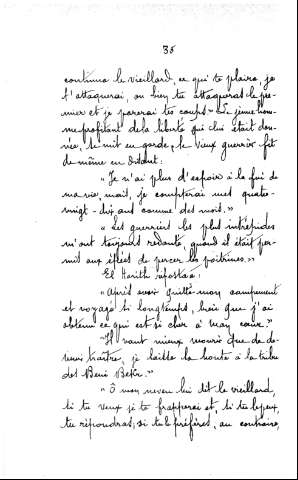 35
continua le vieillard, ce qui te plaira, je
t'attaquerai, ou bien tu attaqueras le pre-
mier et je parerai tes coups." Le jeune hom-
me profitant de la liberté qui lui était don-
née, se mit en garde, le vieux guerrier fit
de même en disant:
"Je n'ai plus d'espoir à la fin de
ma vie, mais, je compterai mes quatre-
vingt-dix ans comme des mois."
"Les guerriers les plus intrépides
m'ont toujours redouté, quand il était per-
mis aux épées de percer les poitrines."
El Harith riposta:
"Après avoir quitté mon campement
et voyagé si longtemps, voici que j'ai
obtenu ce qui est si cher à mon cœur."
"Il vaut mieux mourir que de de-
venir traître, je laisse la honte à la tribu
des Beni Bekr."
"Ô mon neveu lui dit le vieillard,
si tu veux je te frapperai et, si tu le peux,
tu répondras; si tu le préfères, au contraire,